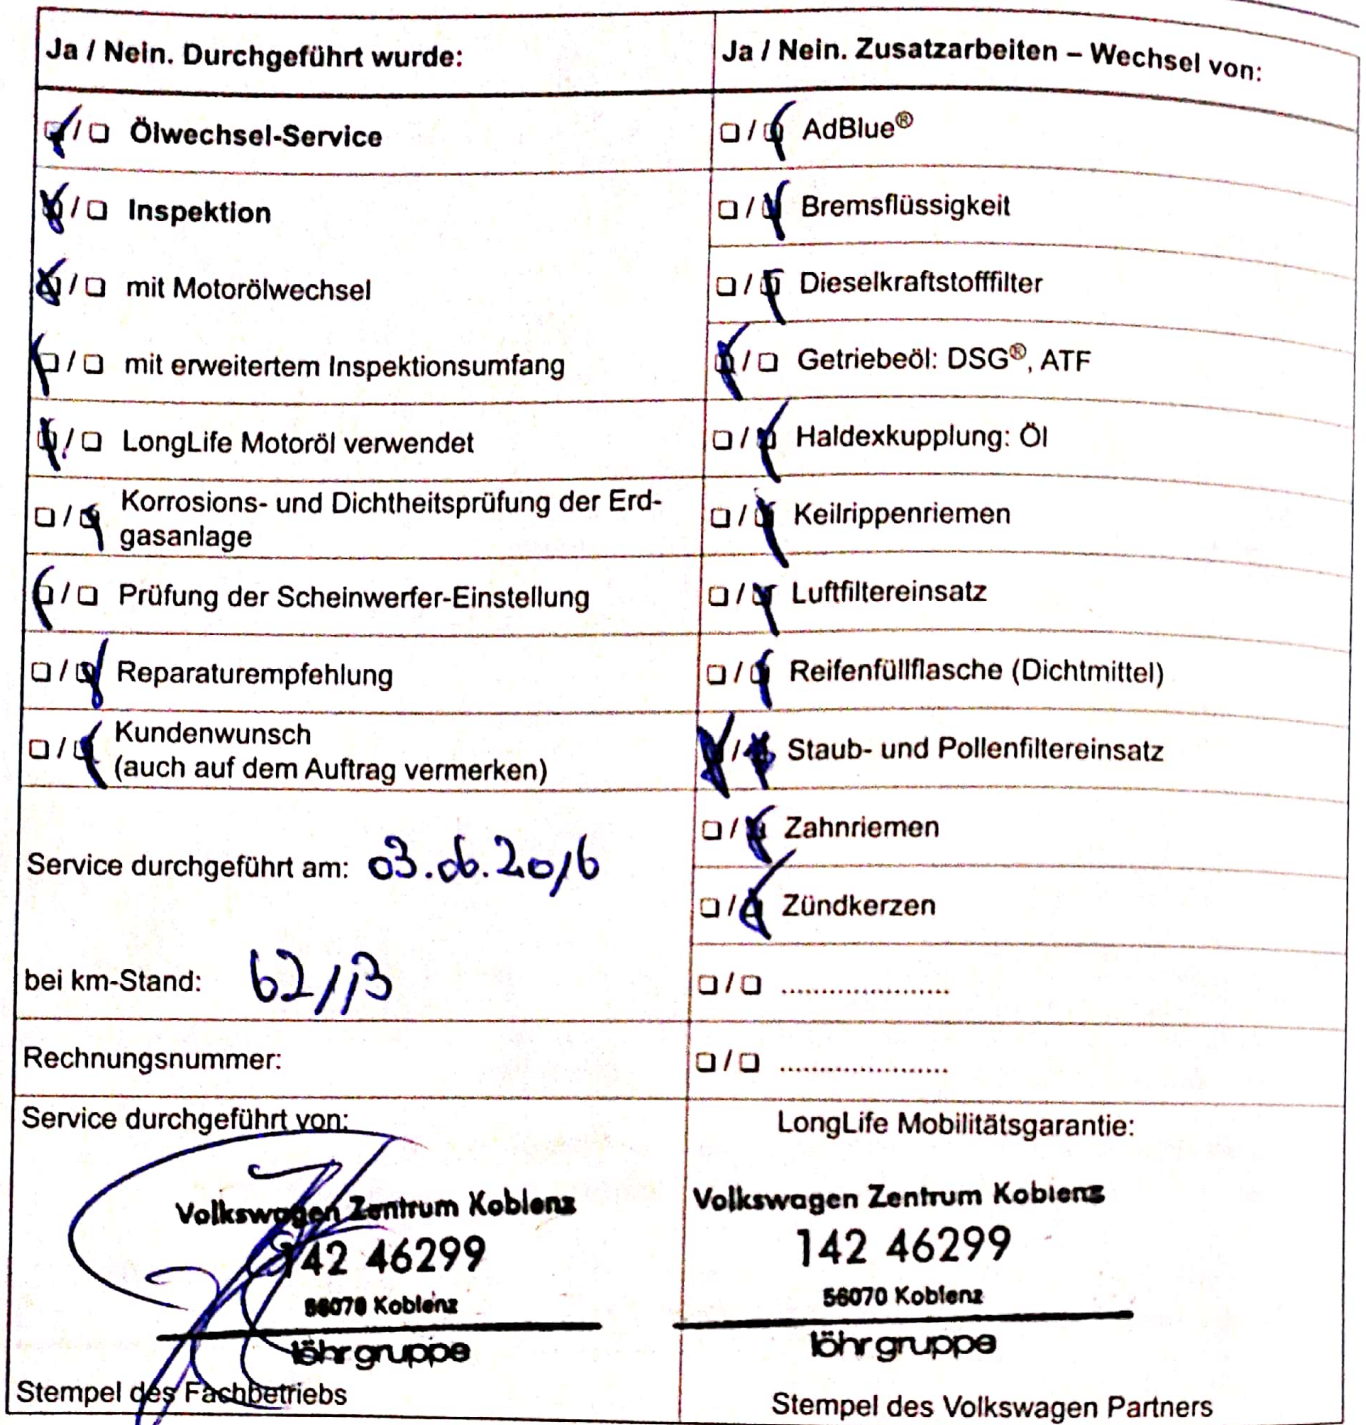 Ja / Nein. Durchgeführt wurde:
☑ / ☐ Ölwechsel-Service
☑ / ☐ Inspektion
☑ / ☐ mit Motorölwechsel
☑ / ☐ mit erweitertem Inspektionsumfang
☑ / ☐ LongLife Motoröl verwendet
☐ / ☑ Korrosions- und Dichtheitsprüfung der Erd-
gasanlage
☑ / ☐ Prüfung der Scheinwerfer-Einstellung
☐ / ☑ Reparaturempfehlung
☐ / ☑ Kundenwunsch
(auch auf dem Auftrag vermerken)
Service durchgeführt am: 03.06.2016
bei km-Stand:
Rechnungsnummer:
Service durchgeführt von:
Volkswagen Zentrum Koblenz
142 46299
56070 Koblenz
löhrgruppe
Stempel des Fachbetriebs
Ja / Nein. Zusatzarbeiten – Wechsel von:
☐ / ☑ AdBlue®
☐ / ☑ Bremsflüssigkeit
☐ / ☑ Dieselkraftstofffilter
☑ / ☐ Getriebeöl: DSG®, ATF
☐ / ☑ Haldexkupplung: Öl
☐ / ☑ Keilrippenriemen
☐ / ☑ Luftfiltereinsatz
☐ / ☑ Reifenfüllflasche (Dichtmittel)
☑ / ☑ Staub- und Pollenfiltereinsatz
☐ / ☑ Zahnriemen
☐ / ☑ Zündkerzen
☐ / ☐ .....................
☐ / ☐ .....................
LongLife Mobilitätsgarantie:
Volkswagen Zentrum Koblenz
142 46299
56070 Koblenz
löhrgruppe
Stempel des Volkswagen Partners